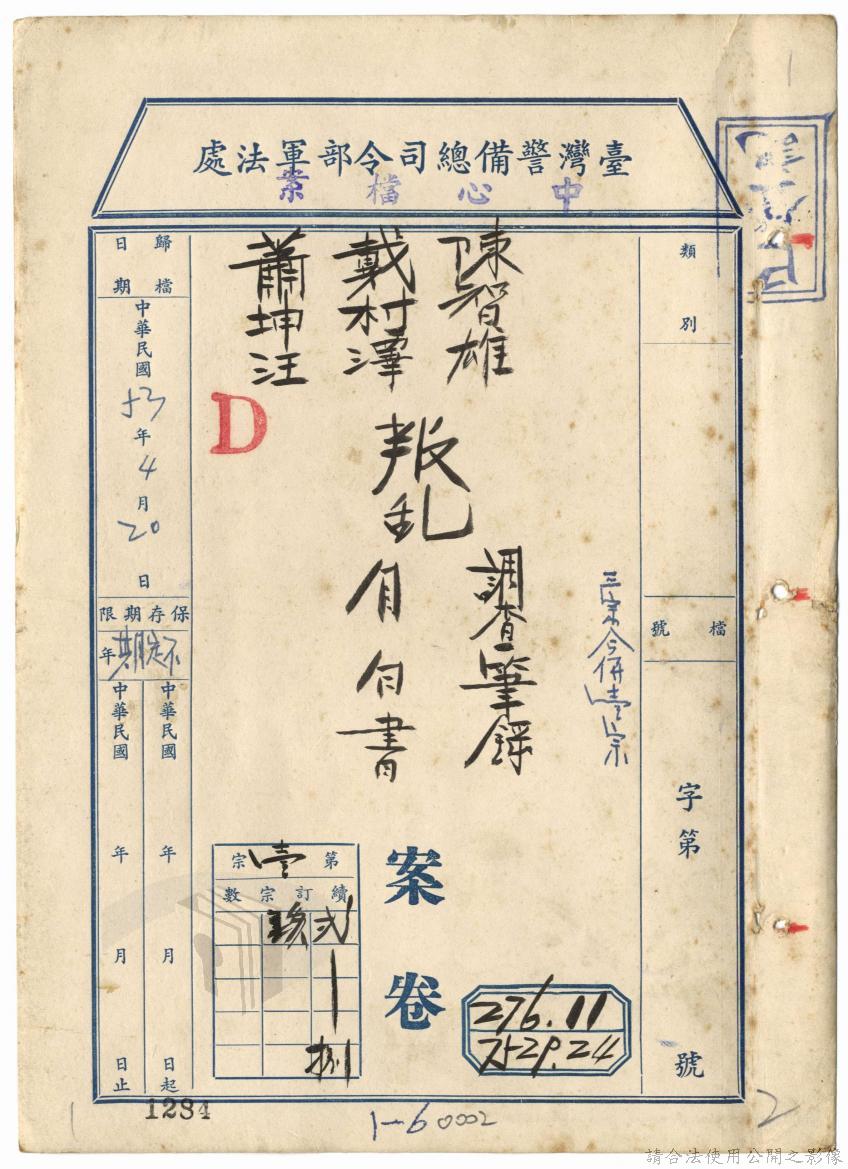 臺灣警備總司令部軍法處
中心檔案
類別
檔號
字第
號
陳智雄
戴村澤
蕭坤汪
叛乱
調查筆錄
自白書
三宗合併壹宗
案卷
D
歸檔日期
中華民國53年4月20日
保存期限
不定期年
中華民國 年 月 日起
中華民國 年 月 日止
第壹宗
續訂宗數
弍
玖
捌
276.11
7529.24
1284
1-6 0002
2
1
1
請合法使用公開之影像